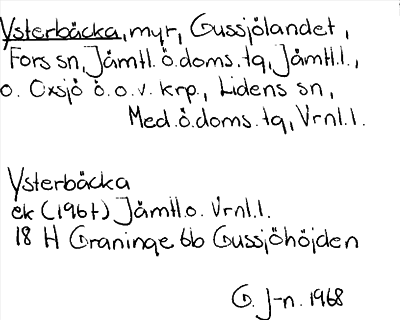 Ysterbäcka, myr, Gussjölandet,
Fors sn, Jämtl. ö. doms. tg, Jämtl.l.,
o. Oxsjö ö. o. v. krp., Lidens sn,
Med. ö. doms. tg, Vrnl.l.
Ysterbäcka
ek (1967) Jämtl o. Vrnl.l.
18 H Graninge 6b Gussjöhöjden
G. J-n. 1968